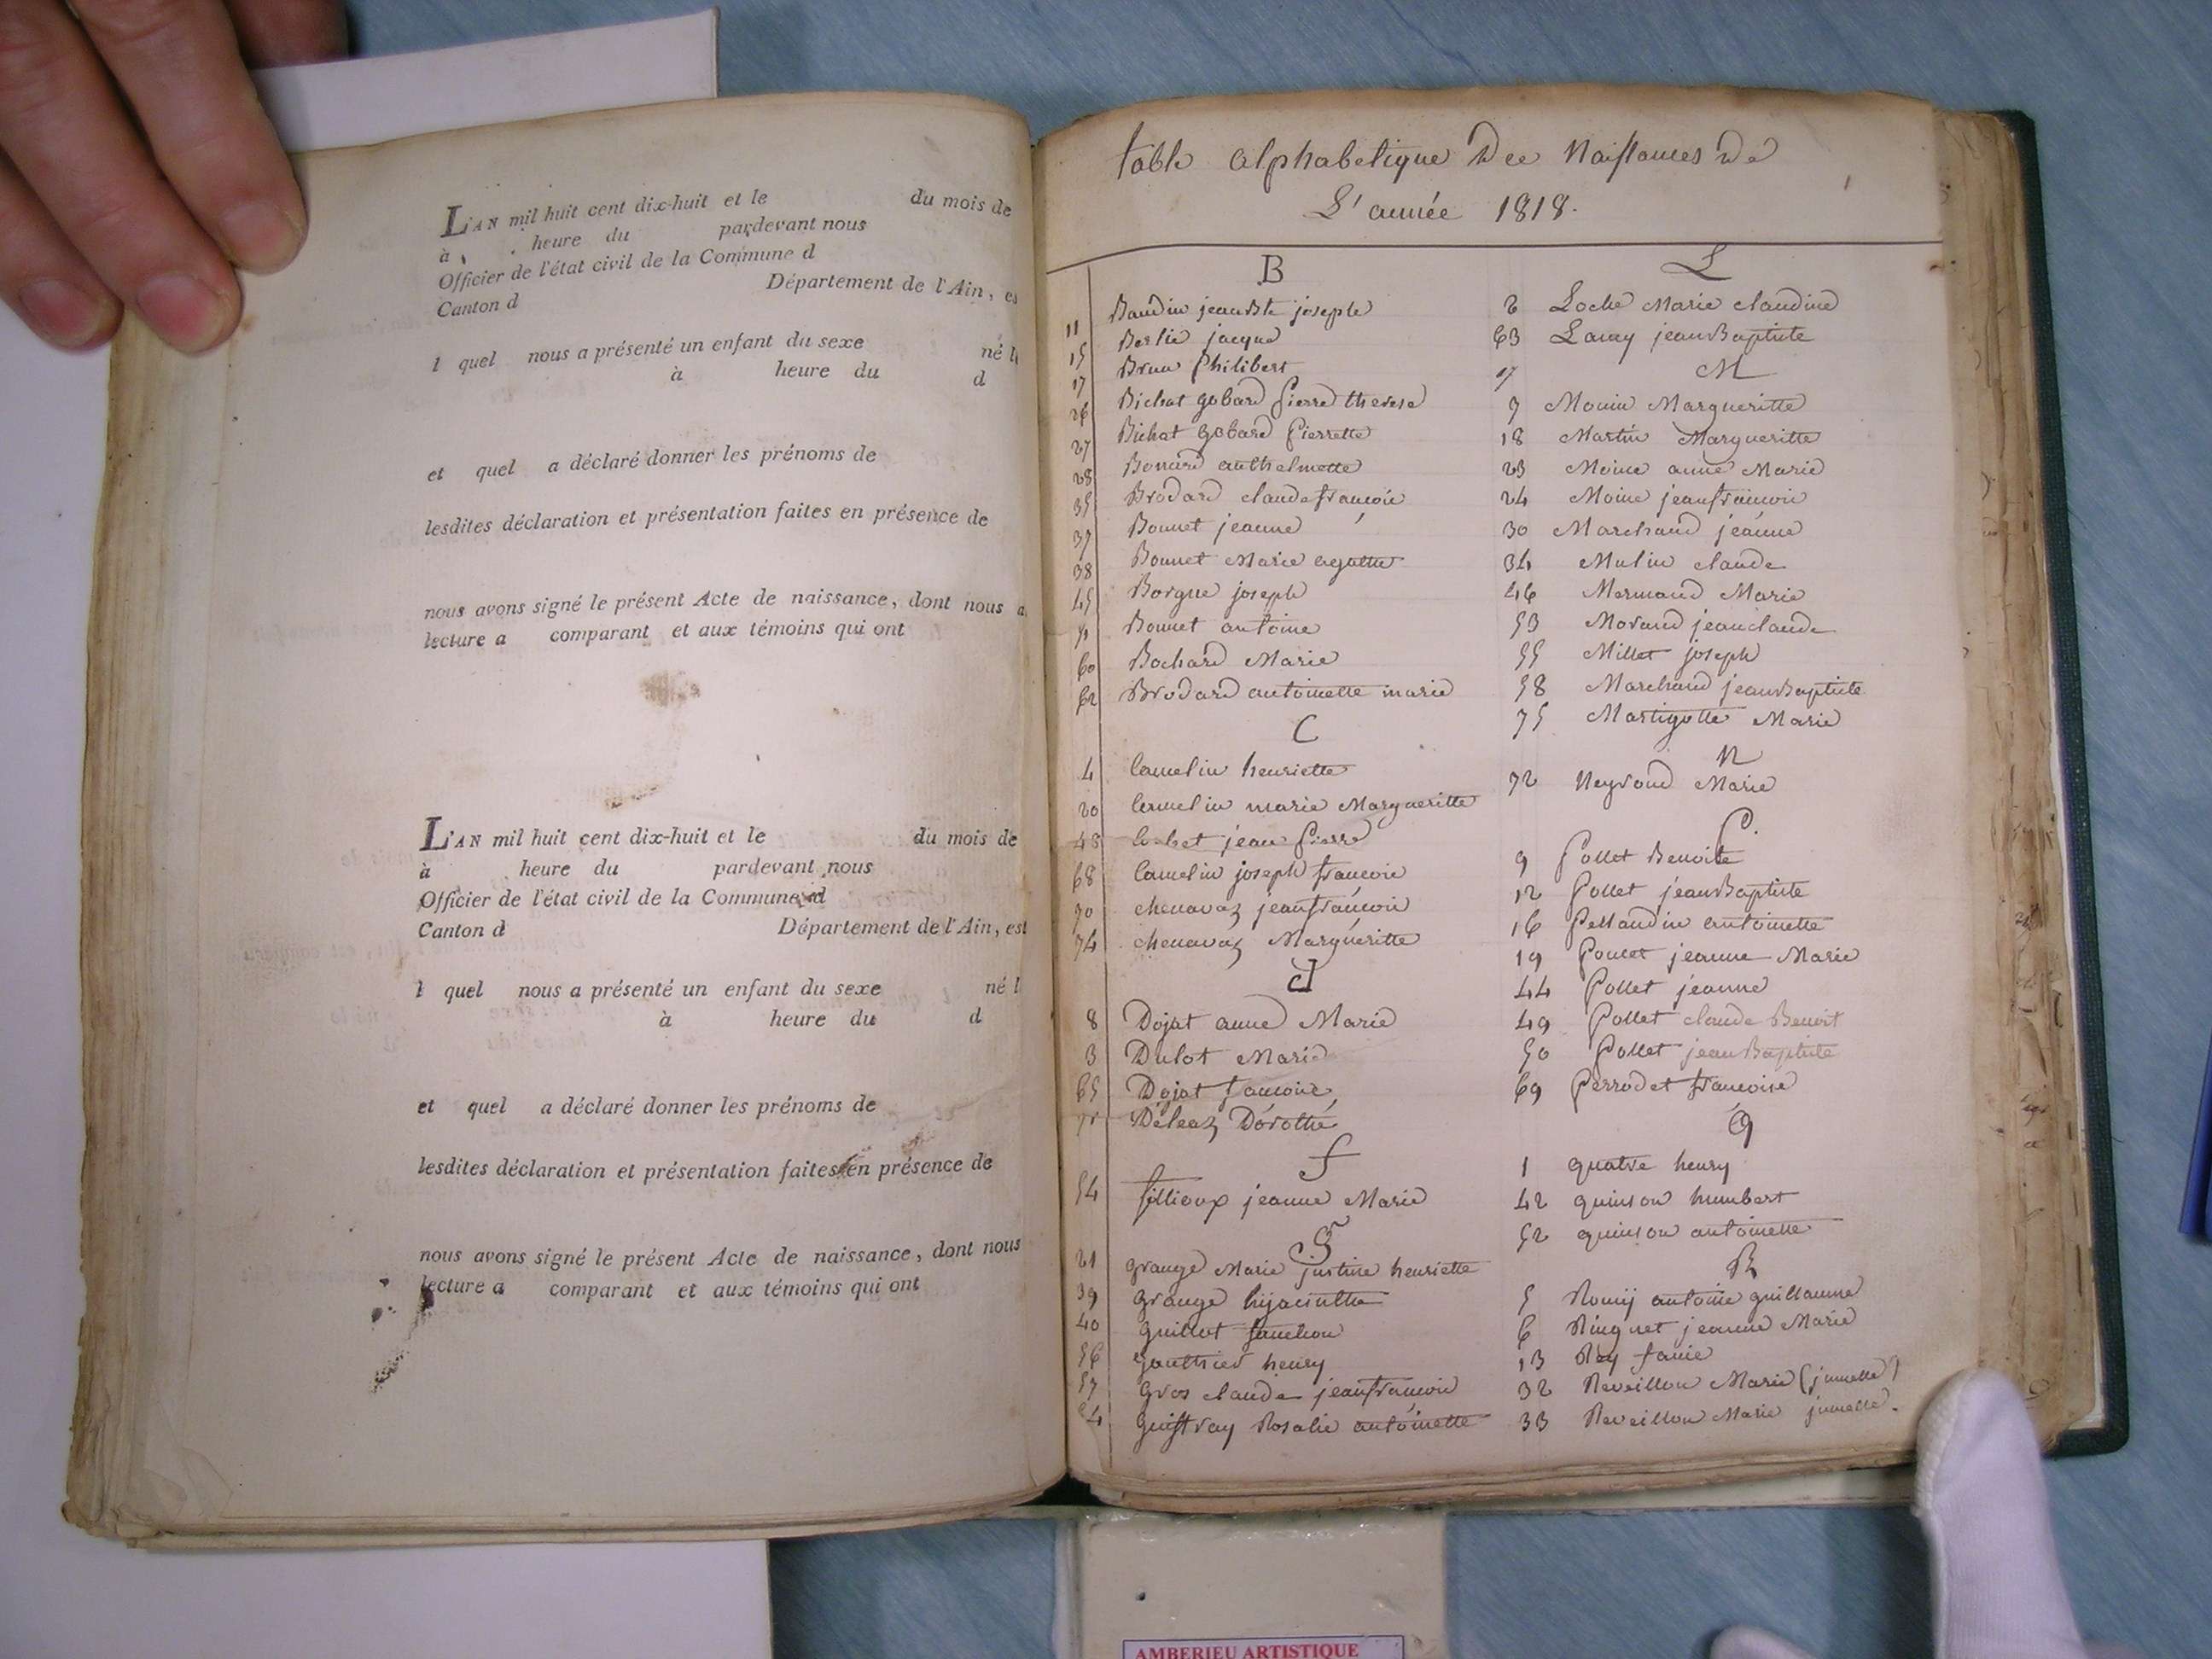 L'AN mil huit cent dix-huit et le du mois de
à heure du pardevant nous
Officier de l'état civil de la Commune d
Canton d Département de l'Ain, es
l quel nous a présenté un enfant du sexe né l
à heure du d
et quel a déclaré donner les prénoms de
lesdites déclaration et présentation faites en présence de
nous avons signé le présent Acte de naissance, dont nous a
lecture a comparant et aux témoins qui ont
L'AN mil huit cent dix-huit et le du mois de
à heure du pardevant nous
Officier de l'état civil de la Commune d
Canton d Département de l'Ain, est
l quel nous a présenté un enfant du sexe né l
à heure du d
et quel a déclaré donner les prénoms de
lesdites déclaration et présentation faites en présence de
nous avons signé le présent Acte de naissance, dont nous
lecture a comparant et aux témoins qui ont
table alphabetique Dee Naissances de
L'année 1818.
B
11 Baudin jean Bte joseph
15 Berlie jacque
17 Brun Philibert
26 Bichat gobard Pierre therese
27 Bichat gobard Pierrette
28 Bonnard anthelmette
35 Brodard claude francois
37 Bonnet jeanne
38 Bonnet Marie
45 Borgne joseph
Bonnet antoine
60 Bochard Marie
62 Brodard antoinette marie
C
4 Camelin henriette
20 Camelin marie Margueritte
48 jean Pierre
68 Camelin joseph francois
70 chenavaz jean francois
74 chenavaz Margueritte
d
8 Dojat anne Marie
3 Dulot Marie
65 Dojat
71 Déleaz Dorothé
f
54 fillioux jeanne Marie
G
21 grange Marie justine henriette
39 grange hyacinthe
40 guillot fanchon
56 gauthier henry
57 gros claude jean francois
64 Rosalie antoinette
L
2 Loche Marie claudine
63 Lamy jean Baptiste
M
7 Monin Margueritte
18 Martin Margueritte
23 Moine anne Marie
24 Moine jean francois
30 Marchand jeanne
34 Mulin claude
46 Mermand Marie
53 Morand jean claude
55 Millet joseph
58 Marchand jean Baptiste
75 Martigotte Marie
N
72 Neyroud Marie
P.
9 Pollet Benoite
12 Pollet jean Baptiste
16 Pellaudin antoinette
19 Poncet jeanne Marie
44 Pollet jeanne
49 Pollet claude Benoit
50 Pollet jean Baptiste
69 Perrodet francoise
Q
1 quatre henry
42 quinson humbert
52 quinson antoinette
R
5 Romij antoine guillaume
6 Ringuet jeanne Marie
13 Rey fanie
32 Reveillon Marie (jumelle)
33 Reveillon Marie jumelle.
AMBERIEU ARTISTIQUE